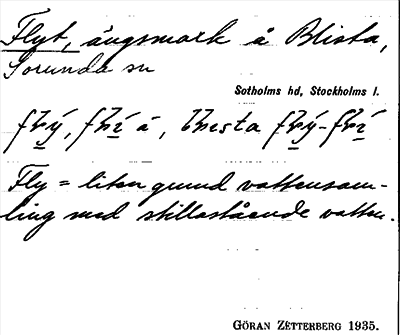 Flyt, ängsmark å Blista,
Sorunda sn
Sotholms hd, Stockholms l.
Fly = liten grund vattensam-
ling med stillastående vatten.
GÖRAN ZETTERBERG 1935.